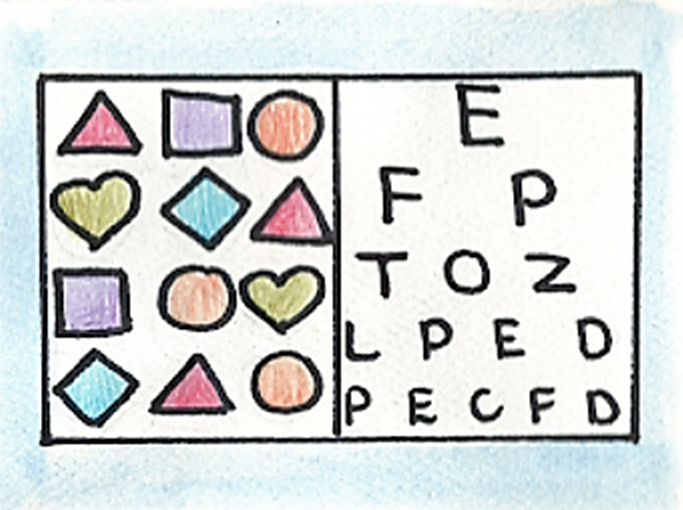 E
F P
T O Z
L P E D
P E C F D